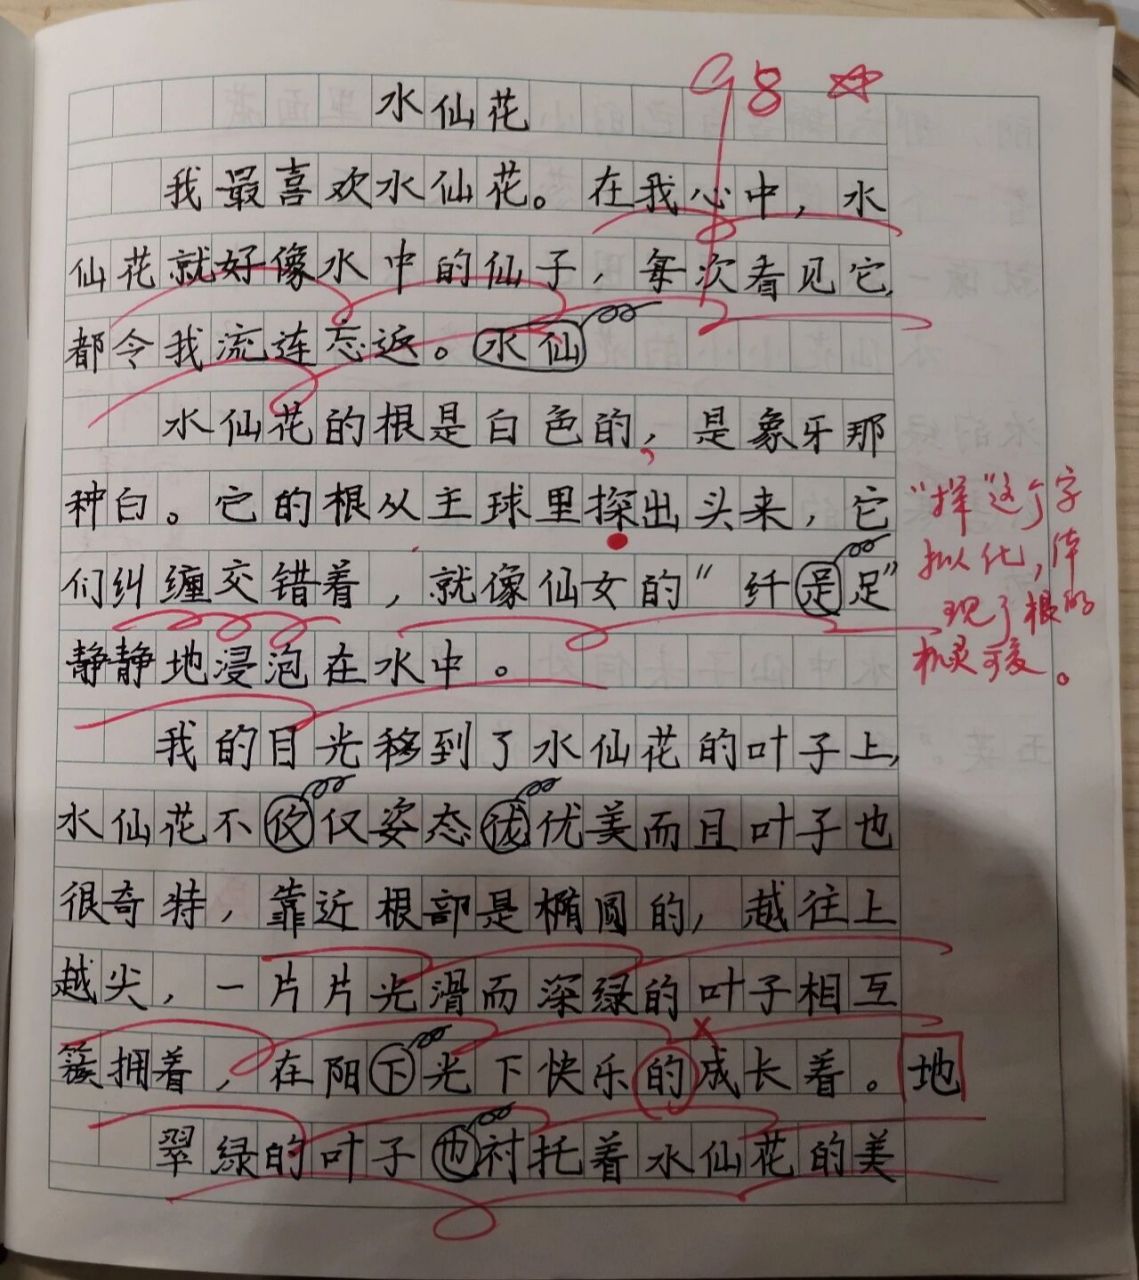 98 ☆
水仙花
我最喜欢水仙花。在我心中，水
仙花就好像水中的仙子，每次看见它，
都令我流连忘返。水仙
水仙花的根是白色的，是象牙那
种白。它的根从主球里探出头来，它
们纠缠交错着，就像仙女的“纤足足”
静静地浸泡在水中。
“探”这个字
拟人化，体
现了根的
机灵可爱。
我的目光移到了水仙花的叶子上，
水仙花不仅姿态优美而且叶子也
很奇特，靠近根部是椭圆的，越往上
越尖，一片片光滑而深绿的叶子相互
簇拥着，在阳下光下快乐的成长着。地
翠绿的叶子也衬托着水仙花的美